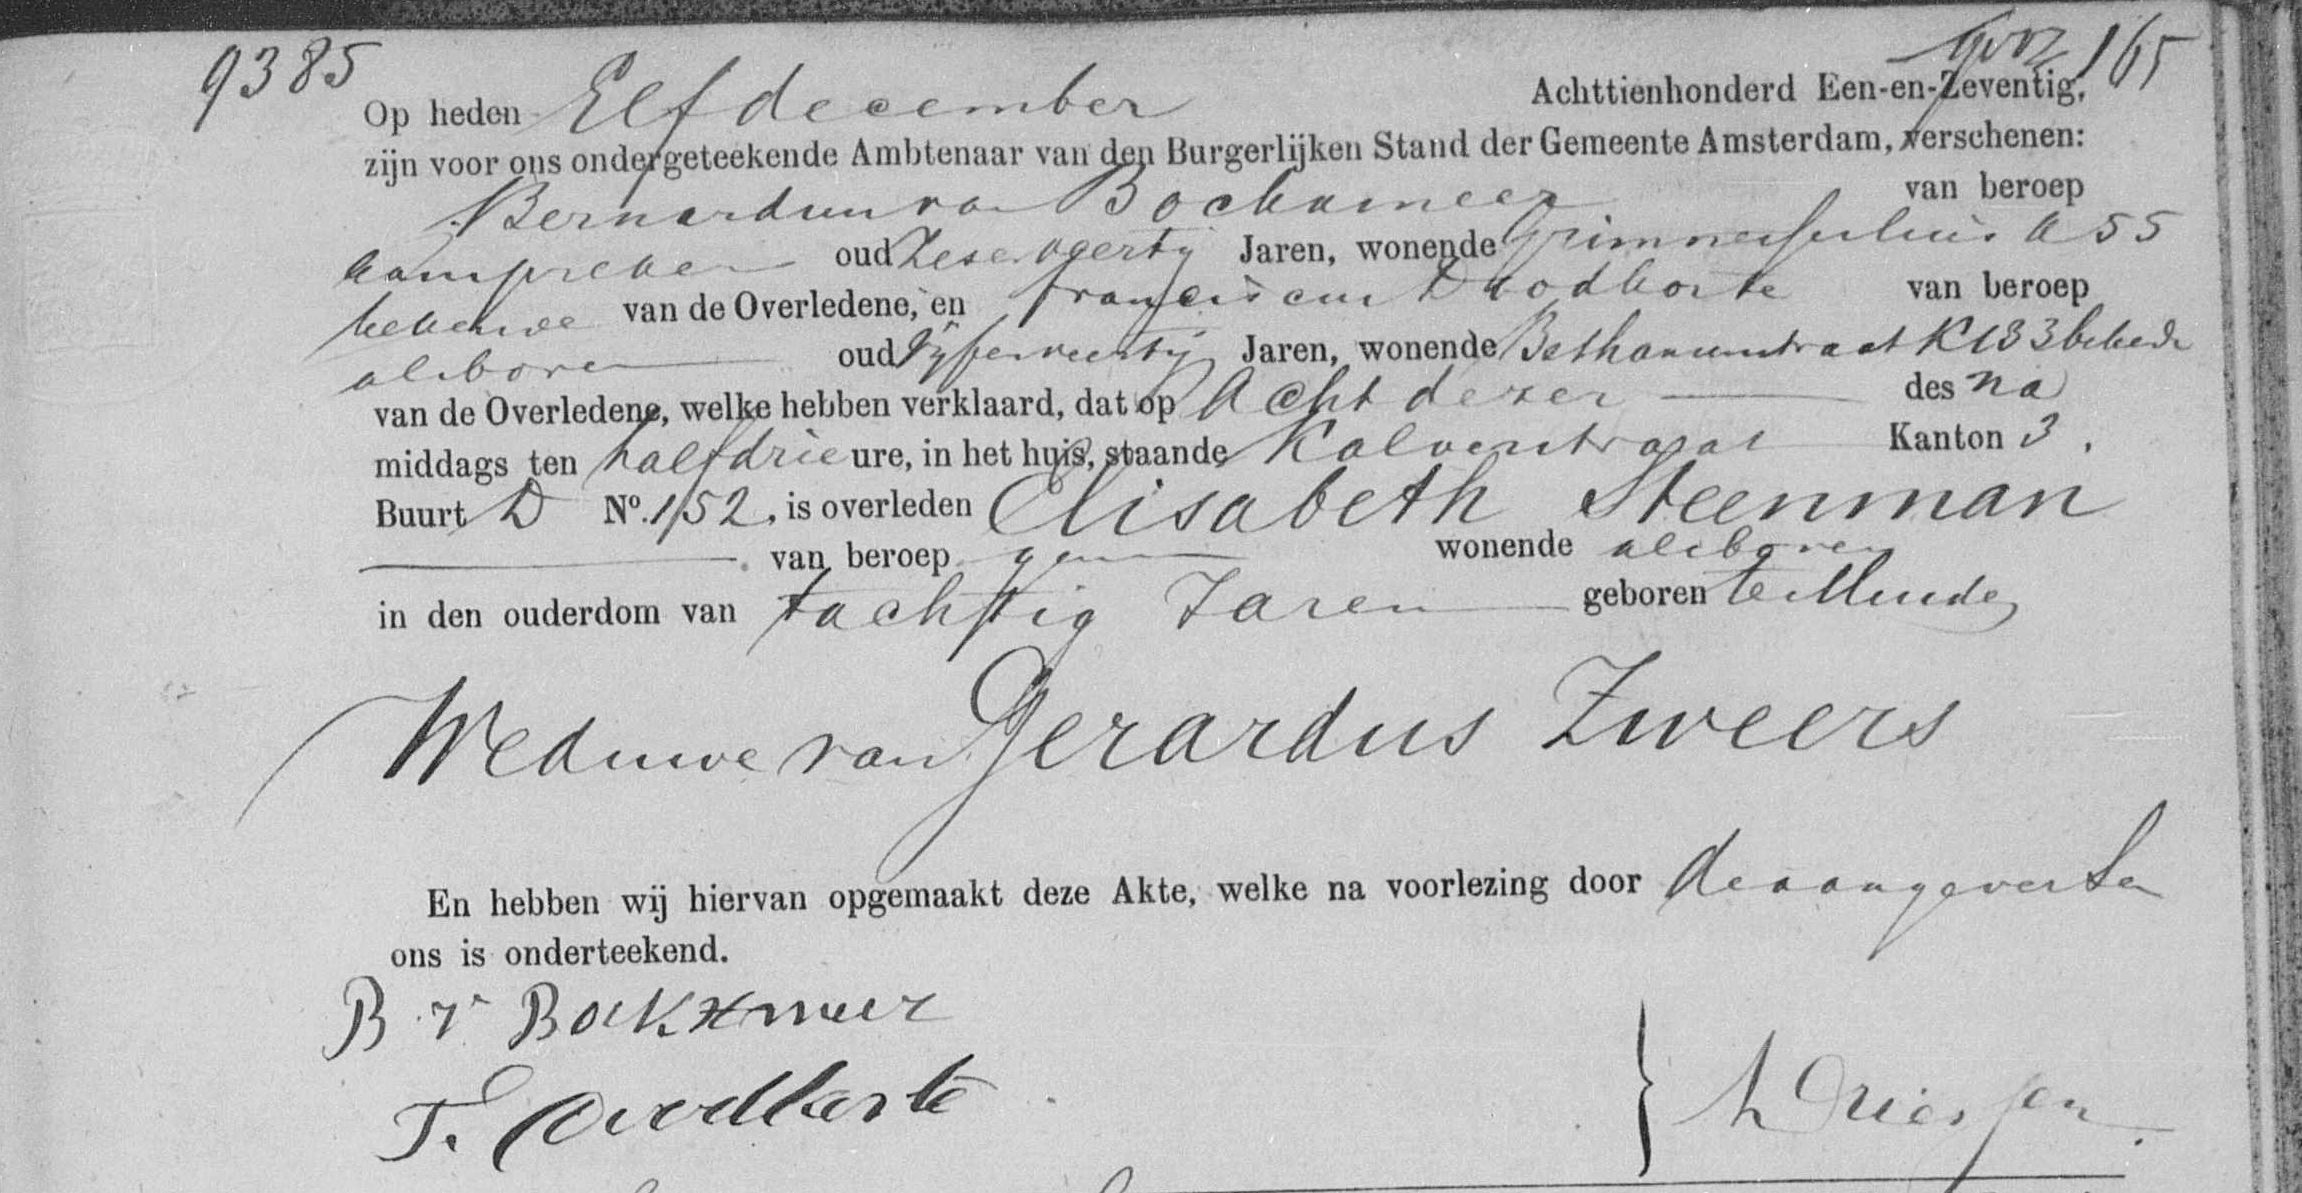 9385
165
Op heden Elf december Achttienhonderd Een-en-Zeventig,
zijn voor ons ondergeteekende Ambtenaar van den Burgerlijken Stand der Gemeente Amsterdam, verschenen:
Bernardus van van beroep
aanspreker oud Zesenveertig Jaren, wonende A 55
bekende van de Overledene, en Franciscus van beroep
alsboven oud Vyfenveertig Jaren, wonende Bethanienstraat K 133 bekende
van de Overledene, welke hebben verklaard, dat op Acht dezer des na
middags ten half drie ure, in het huis, staande Kalverstraat Kanton 3.
Buurt D No. 152, is overleden Elisabeth Steenman
van beroep geen wonende alsboven
in den ouderdom van tachtig Jaren geboren te
Weduwe van Gerardus Zweers
En hebben wij hiervan opgemaakt deze Akte, welke na voorlezing door de aangevers en
ons is onderteekend.
B v
F.
Driessen